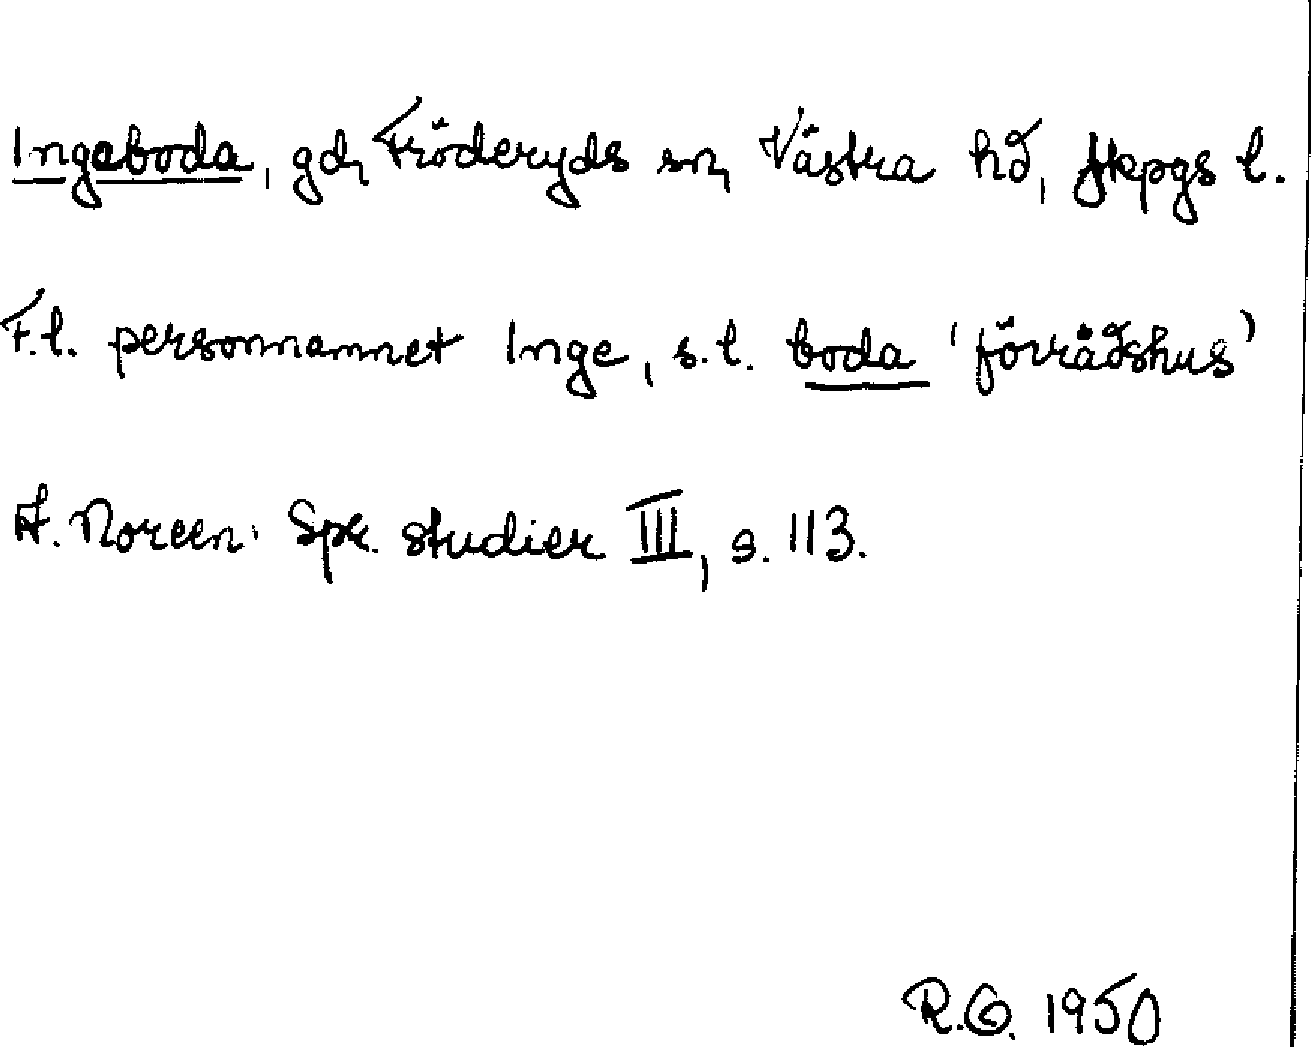 Ingeboda, gd, Fröderyds sn, Västra hd, Jkpgs l.
F.l. personnamnet Inge, s.l. boda 'förrådshus'
A. Noreen: Spr. studier III, s. 113.
R.G. 1950